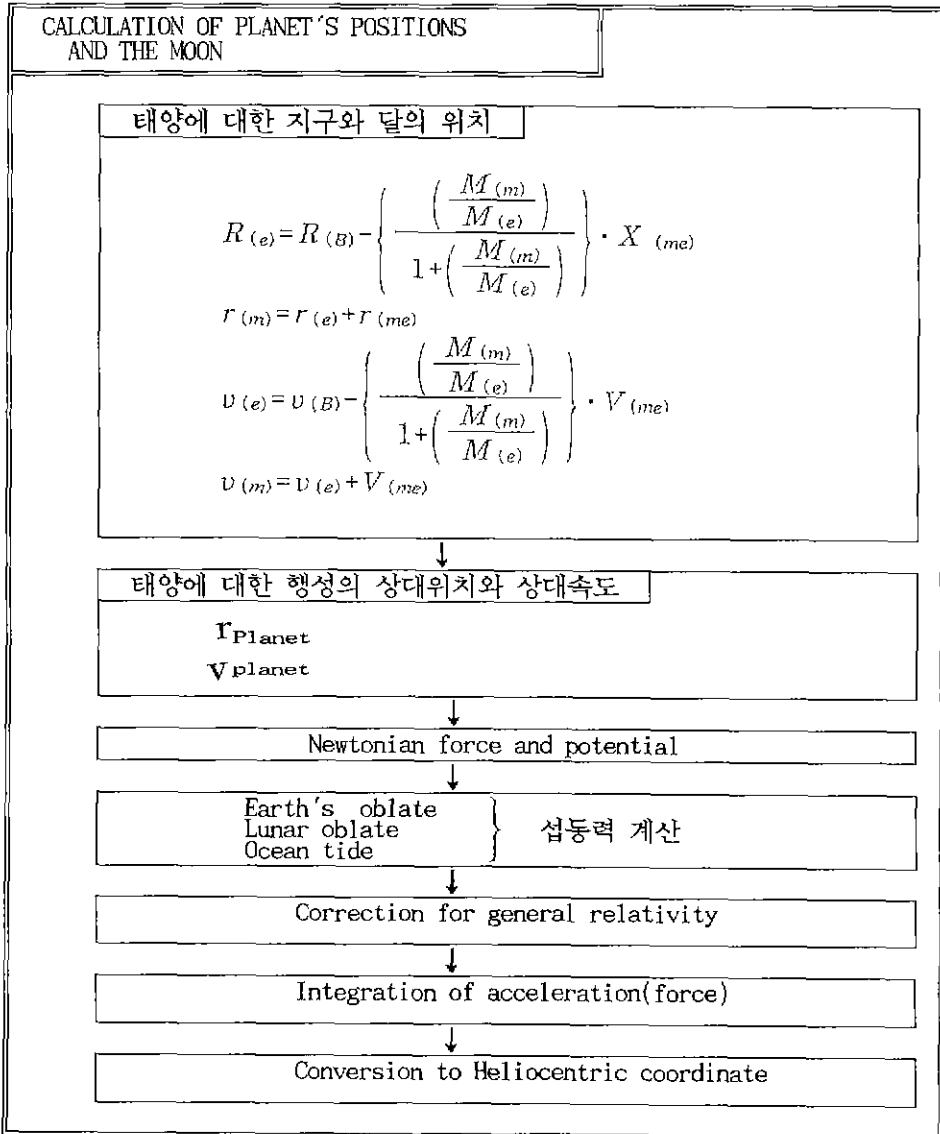 CALCULATION OF PLANET'S POSITIONS
AND THE MOON
태양에 대한 지구와 달의 위치
R (e) = R (B) - { ( M (m) / M (e) ) / 1 + ( M (m) / M (e) ) } · X (me)
r (m) = r (e) + r (me)
υ (e) = υ (B) - { ( M (m) / M (e) ) / 1 + ( M (m) / M (e) ) } · V (me)
υ (m) = υ (e) + V (me)
태양에 대한 행성의 상대위치와 상대속도
r Planet
v planet
Newtonian force and potential
Earth's oblate
Lunar oblate
Ocean tide
섭동력 계산
Correction for general relativity
Integration of acceleration(force)
Conversion to Heliocentric coordinate